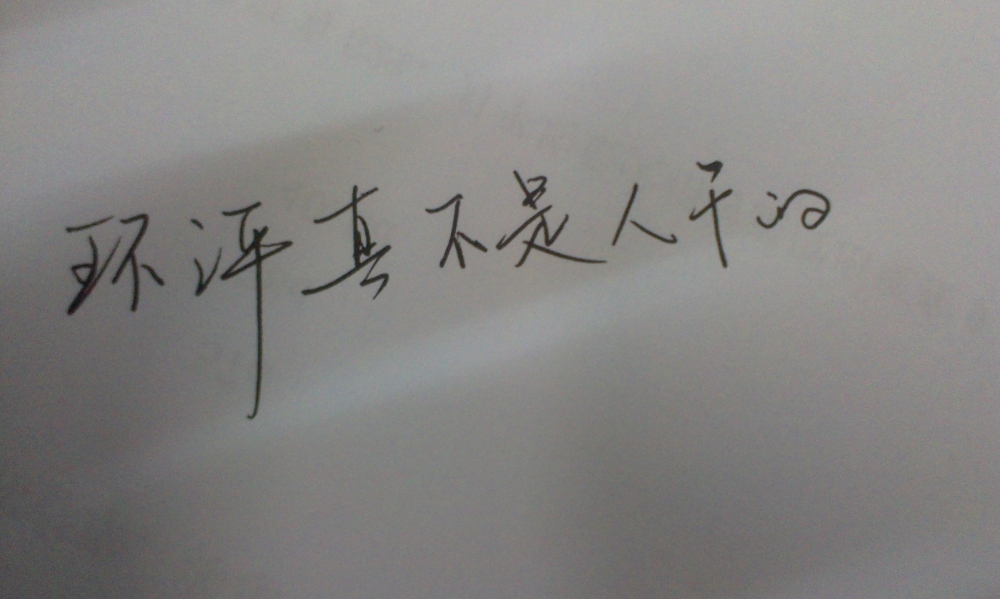 环评真不是人干的